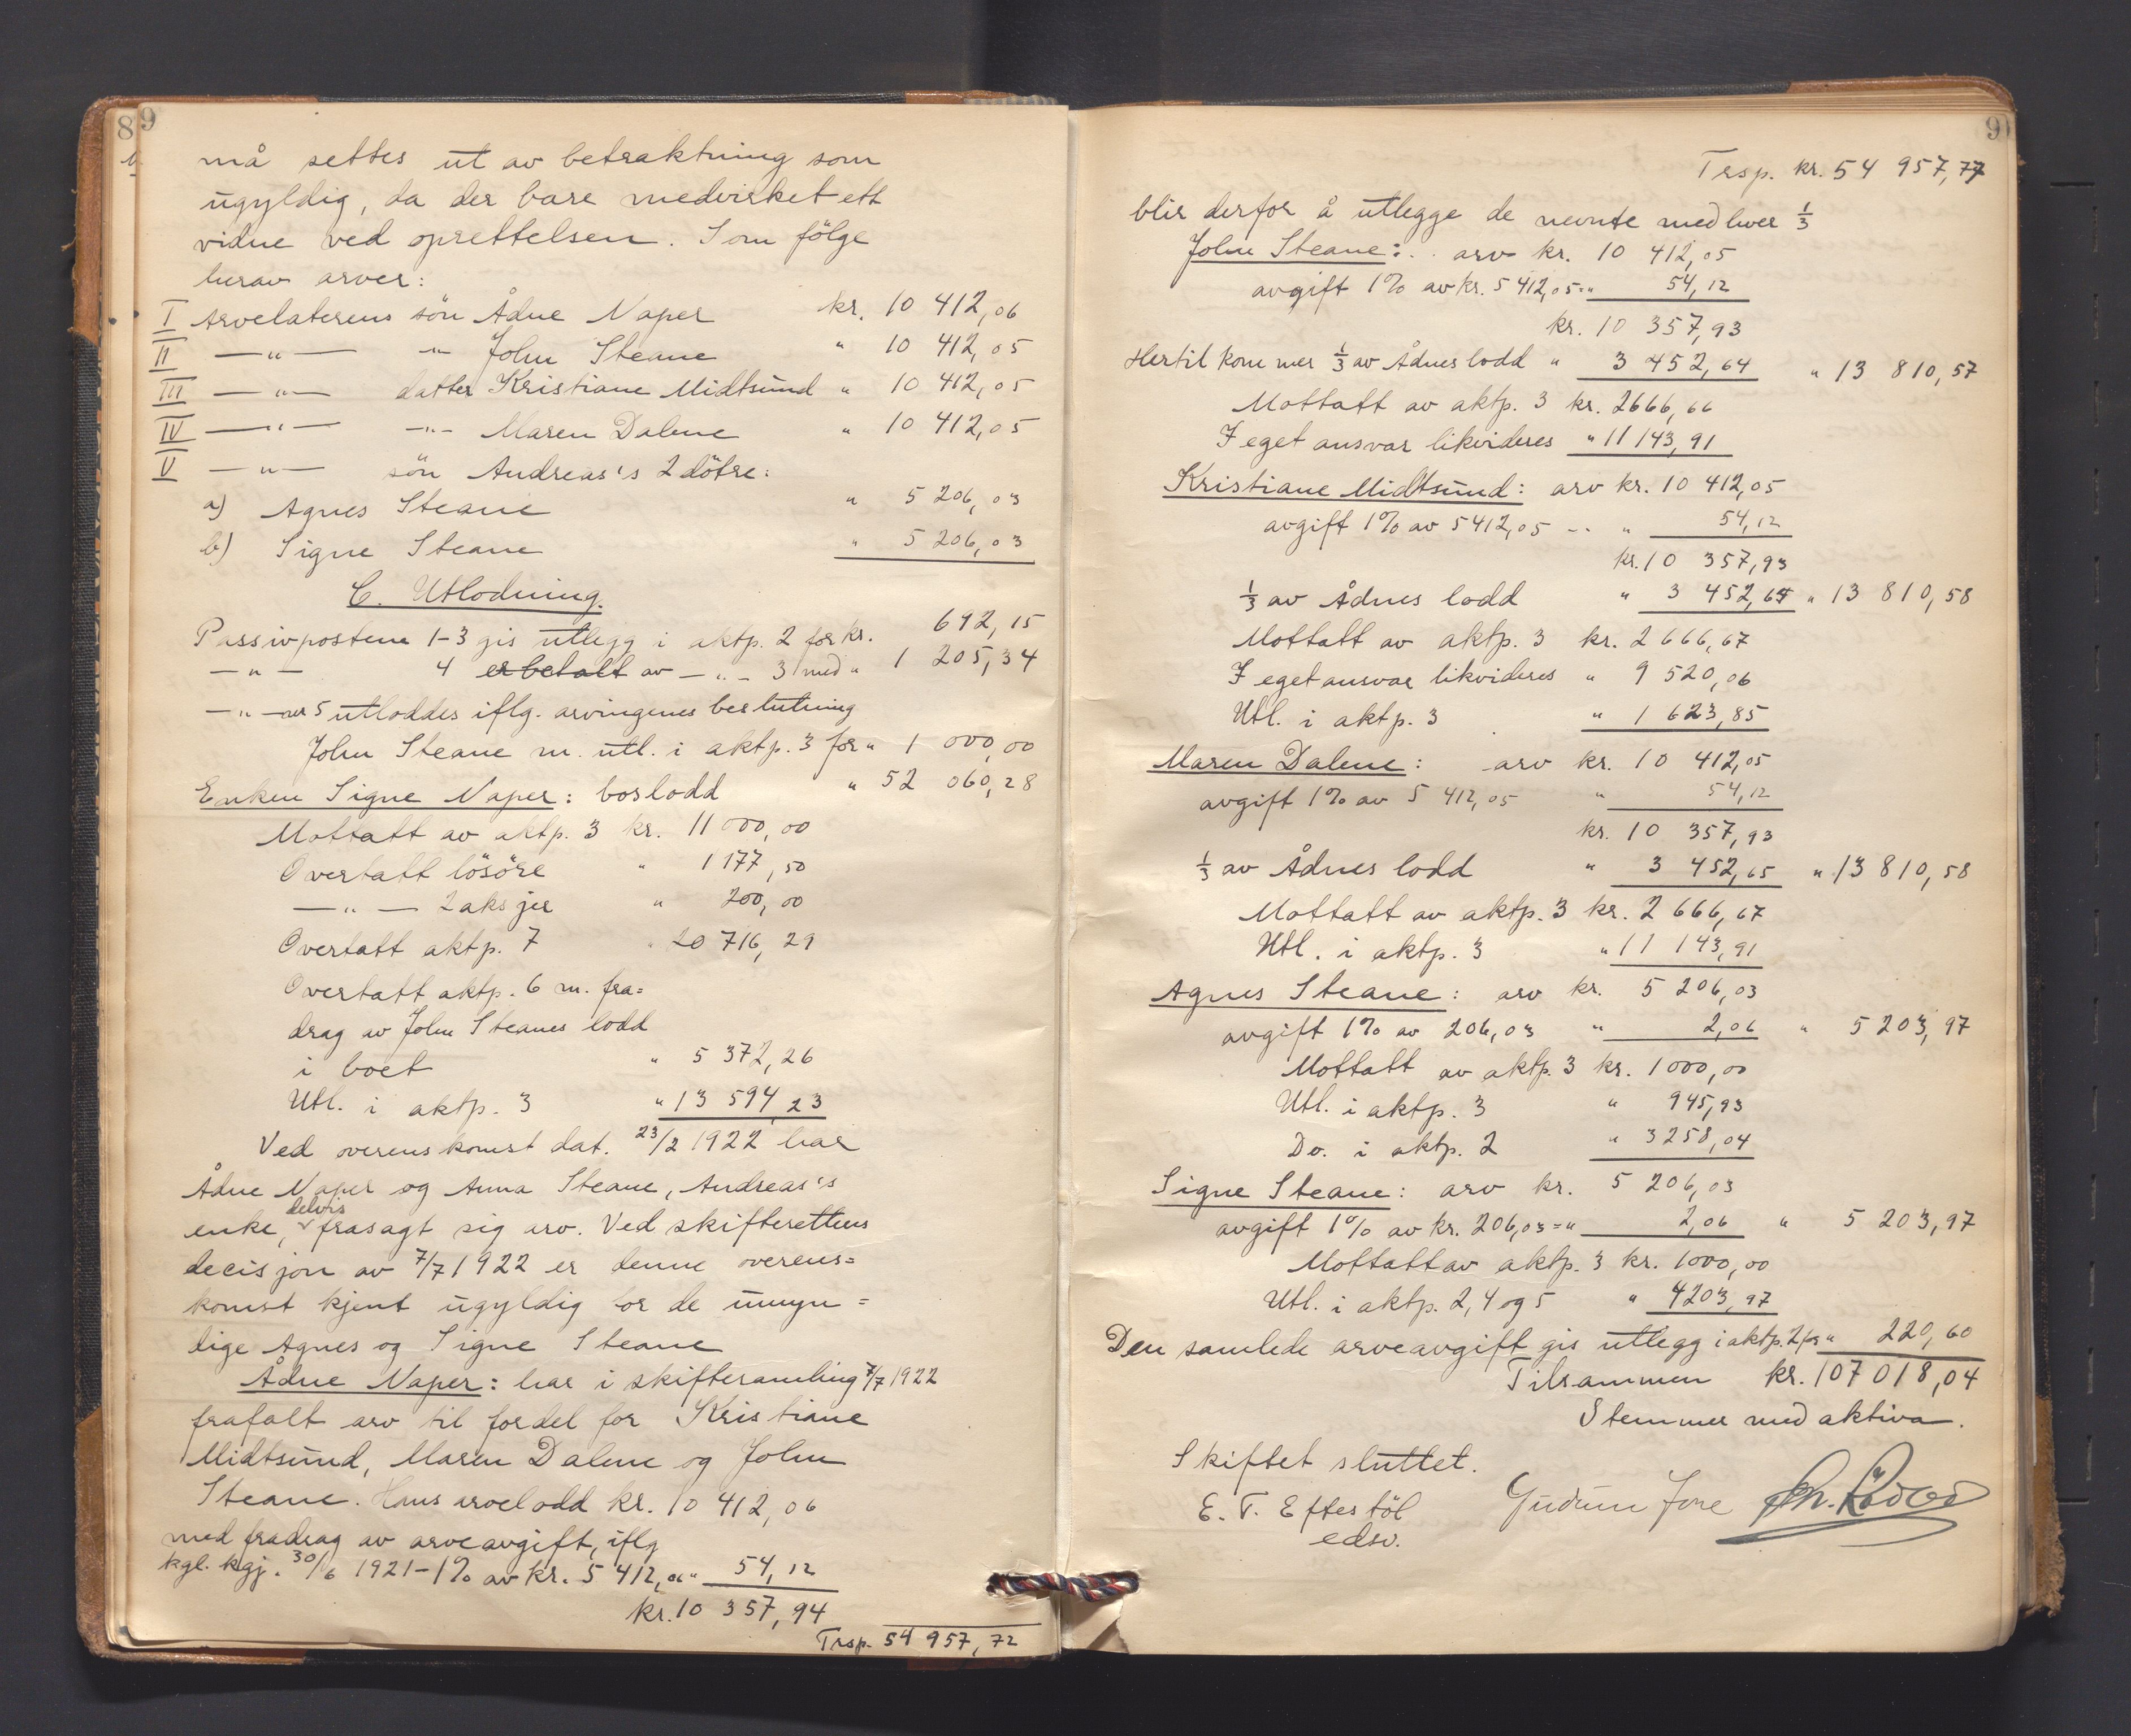 89
må settes ut av betraktning som
ugyldig, da der bare medvirket ett
vidne ved oprettelsen. Som følge
herav arver:
I Arvelaterens sön Ådne Naper kr. 10 412,06
II —"— " John Steane " 10 412,05
III —"— datter Kristiane Midtsund " 10 412,05
IV —"— —"— Maren Dalene " 10 412,05
V —"— sön Andreas's 2 dötre:
a) Agnes Steane " 5 206,03
b) Signe Steane " 5 206,03
C. Utlodning.
Passivpostene 1-3 gis utlegg i aktp. 2 for kr. 692,15
—"— 4 er betalt av —"— 3 med " 1 205,34
—"— 5 utloddes iflg. arvingenes beslutning
John Steane m. utl. i aktp. 3 for " 1 000,00
Enken Signe Naper: boslodd " 52 060,28
Mottatt av aktp. 3 kr. 11 000,00
Overtatt lösöre " 1 177,50
—"— 2 aksjer " 200,00
Overtatt aktp. 7 " 20 716,29
Overtatt aktp. 6 m. fra=
drag av John Steanes lodd
i boet " 5 372,26
Utl. i aktp. 3 " 13 594,23
Ved overenskomst dat. 23/2 1922 har
Ådne Naper og Anna Steane, Andreas's
enke, delvis frasagt sig arv. Ved skifterettens
decisjon av 7/7 1922 er denne overens=
komst kjent ugyldig for de umyn=
dige Agnes og Signe Steane
Ådne Naper: har i skiftesamling 7/7 1922
frafalt arv til fordel for Kristiane
Midtsund, Maren Dalene og John
Steane. Hans arvelodd kr. 10 412,06
med fradrag av arveavgift, iflg
kgl. kgj. 30/6 1921 - 1% av kr. 5 412,06 " 54,12
kr. 10 357,94
Trsp. 54 957,72
9
Trsp. kr. 54 957,77
blir derfor å utlegge de nevnte med hver 1/3
John Steane: .. arv kr. 10 412,05
avgift 1% av kr. 5 412,05 = " 54,12
kr. 10 357,93
Hertil kommer 1/3 av Ådnes lodd " 3 452,64 " 13 810,57
Mottatt av aktp. 3 kr. 2666,66
I eget ansvar likvideres " 11 143,91
Kristiane Midtsund: arv kr. 10 412,05
avgift 1% av 5412,05 -- " 54,12
kr. 10 357,93
1/3 av Ådnes lodd " 3 452,65 " 13 810,58
Mottatt av aktp. 3 kr. 2 666,67
I eget ansvar likvideres " 9 520,06
Utl. i aktp. 3 " 1 623,85
Maren Dalene: arv kr. 10 412,05
avgift 1% av 5 412,05 " 54,12
kr. 10 357,93
1/3 av Ådnes lodd " 3 452,65 " 13 810,58
Mottatt av aktp. 3 kr. 2 666,67
Utl. i aktp. 3 " 11 143,91
Agnes Steane: arv kr. 5 206,03
avgift 1% av 206,03 " 2,06 " 5 203,97
Mottatt av aktp. 3 kr. 1000,00
Utl. i aktp. 3 " 945,93
Do. i aktp. 2 " 3258,04
Signe Steane: arv kr. 5 206,03
avgift 1% av kr. 206,03 = " 2,06 " 5 203,97
Mottatt av aktp. 3 kr. 1000,00
Utl. i aktp. 2, 4 og 5 " 4203,97
Den samlede arveavgift gis utlegg i aktp. 2 for " 220,60
Tilsammen kr. 107 018,04
Stemmer med aktiva.
Skiftet sluttet.
E. T. Eftestöl Gudrun Jore
edsv.